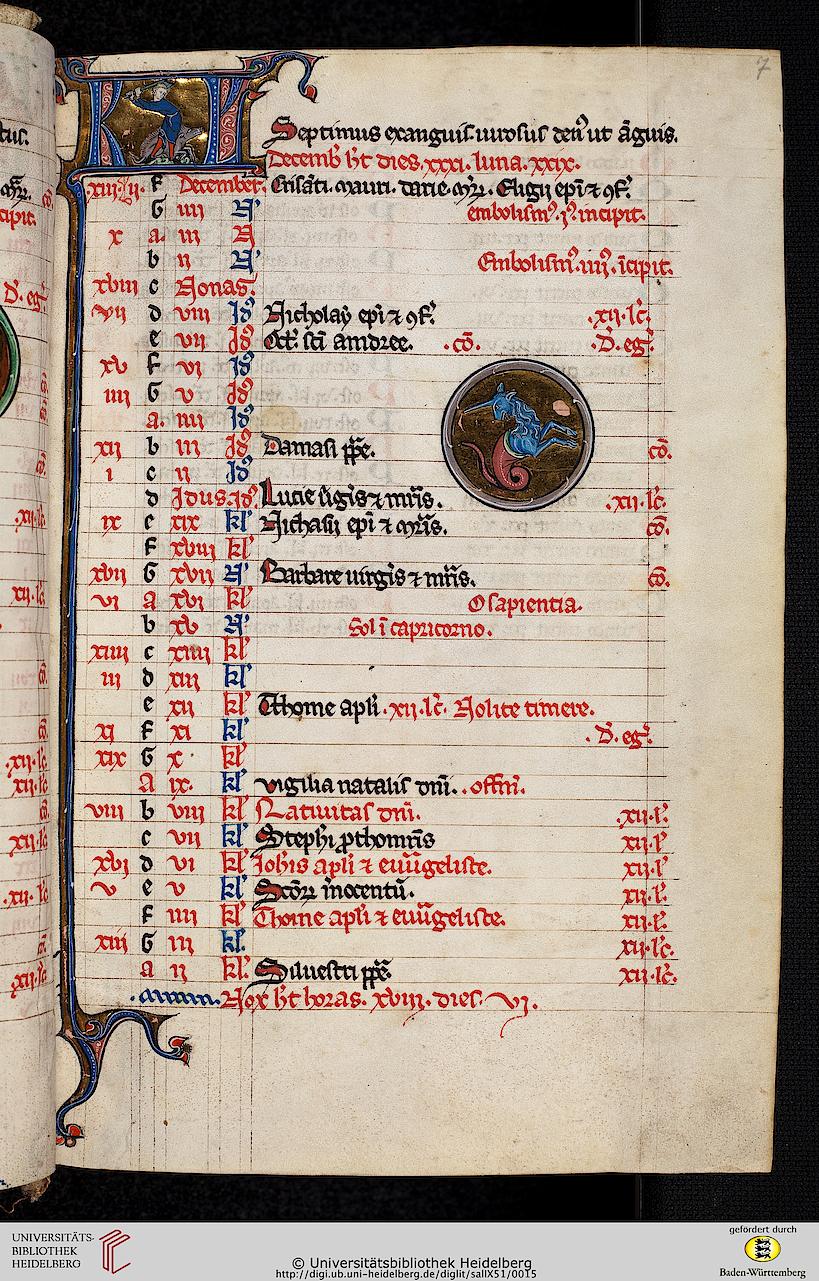 7
Septimus exanguis. uirosus den9 ut āguis.
Decemb h't dies. xxxi. luna. xxix.
F December. Crisāti. mauri. darie. m̄r. Eligii epī ⁊ ɔf.
G iiii N' embolism9. incipit.
x a. iii N
b ii N' Embolism9. iīcipit.
xviii c Nonas.
vii d viii Id9 Nicholay epī ⁊ ɔf. .xii. lc̄.
e vii Id9 Oct. sc̄i andree. .cō. .D. eg.
xv F vi Id9
iiii G v Id9
a. iiii Id9
xii b iii Id9 Damasi p̄pe. cō.
i c ii Id9
d Idus. id9. Lucie uīgis ⁊ mr̄is. .xii. lc̄.
ix e xix kl' Nichasii epī ⁊ mr̄is. cō.
F xviii kl'
xvii G xvii N' Barbare uirgīs ⁊ mr̄is. cō.
vi a xvi kl' O sapientia.
b xv N' Sol ī capricorno.
xiiii c xiiii kl'
iii d xiii kl'
e xii kl' Thome apl'i. xii. lc̄. Nolite timere.
xi F xi kl' . D. eg.
xix G x kl'
A ix. kl' vigilia natalis dn̄i. . offm̄.
viii b viii kl' Natiuitas dn̄i. .xii. l'.
c vii kl' Steph'i ꝓthomr̄is xii. l'
xvi d vi kl' Ioh'is apl'i ⁊ euūgeliste. xii. l'
v e v kl' Scōꝝ īnocentū. xii. l'.
F iiii kl' Thome apl'i ⁊ euūgeliste. xii. l'.
xiii G iii kl'. xii. lc̄.
a ii kl'. Siluestri p̄pe xii. lc̄.
Nox h't horas. xviii. dies. vi.
UNIVERSITÄTS-
BIBLIOTHEK
HEIDELBERG
© Universitätsbibliothek Heidelberg
http://digi.ub.uni-heidelberg.de/diglit/salIX51/0015
gefördert durch
Baden-Württemberg